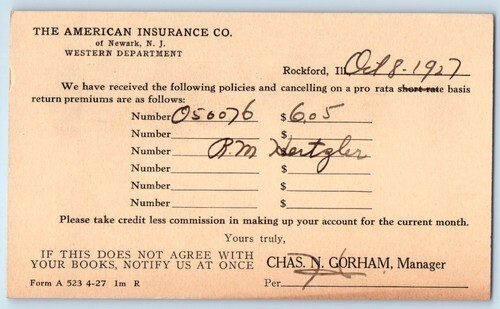 THE AMERICAN INSURANCE CO.
of Newark, N. J.
WESTERN DEPARTMENT
Rockford, Ill. Oct 8-1927
We have received the following policies and cancelling on a pro rata short rate basis
return premiums are as follows:
Number 050076 $ 6.05
Number $
Number R.M Hertzler $
Number $
Number $
Number $
Please take credit less commission in making up your account for the current month.
Yours truly,
IF THIS DOES NOT AGREE WITH
YOUR BOOKS, NOTIFY US AT ONCE
CHAS. N. GORHAM, Manager
Form A 523 4-27 1m R
Per